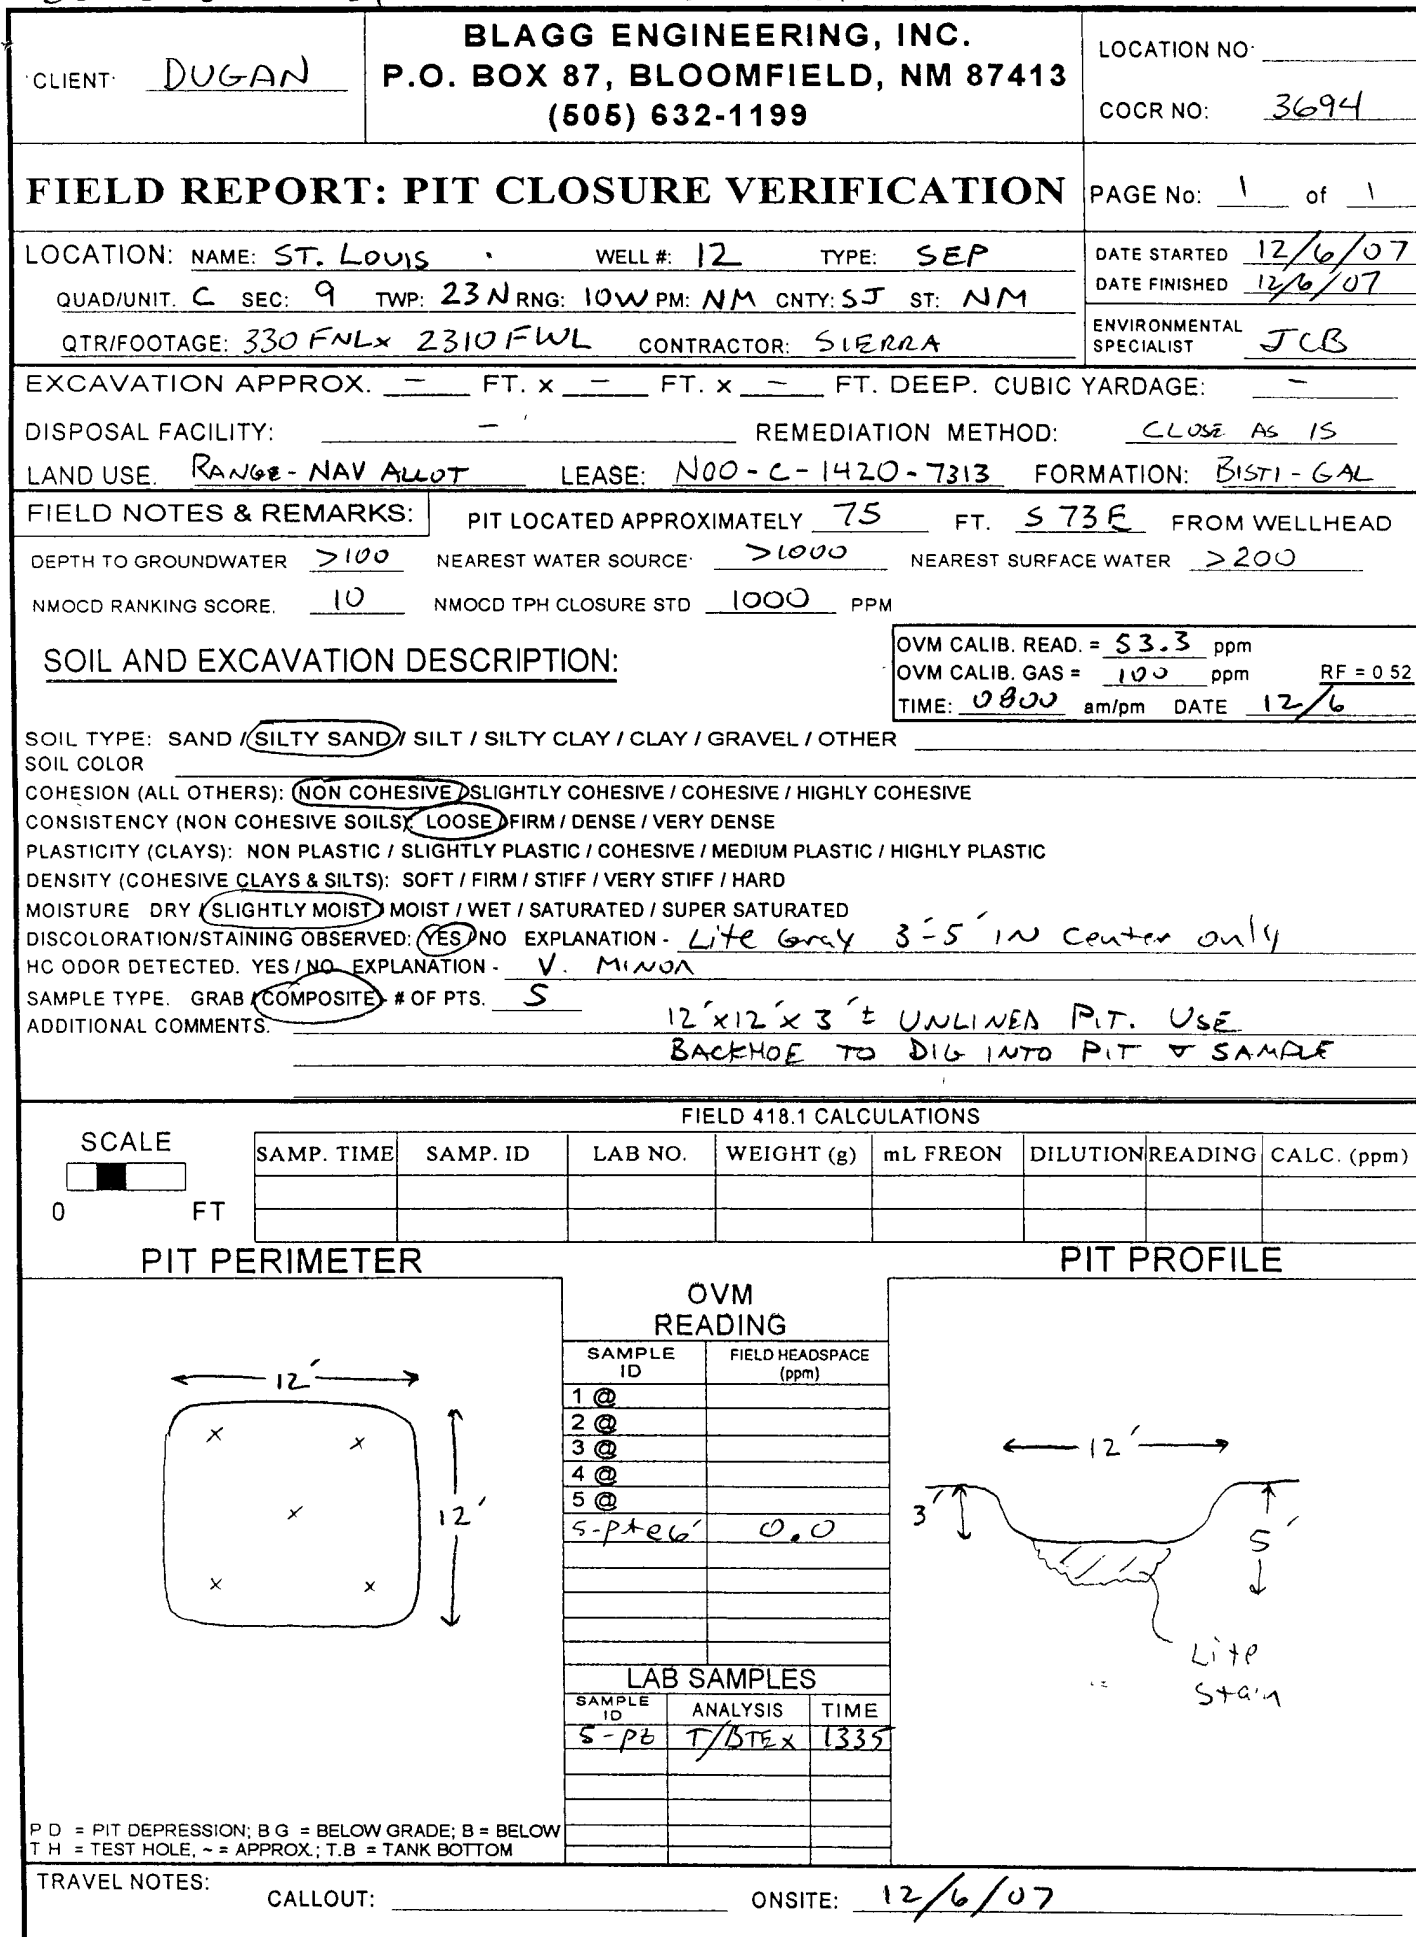 BLAGG ENGINEERING, INC.
CLIENT: DUGAN
P.O. BOX 87, BLOOMFIELD, NM 87413
(505) 632-1199
LOCATION NO:
COCR NO: 3694
FIELD REPORT: PIT CLOSURE VERIFICATION
PAGE No: 1 of 1
LOCATION: NAME: ST. LOUIS WELL #: 12 TYPE: SEP
QUAD/UNIT. C SEC: 9 TWP: 23N RNG: 10W PM: NM CNTY: SJ ST: NM
QTR/FOOTAGE: 330 FNL x 2310 FWL CONTRACTOR: SIERRA
DATE STARTED 12/6/07
DATE FINISHED 12/6/07
ENVIRONMENTAL SPECIALIST JCB
EXCAVATION APPROX. - FT. x - FT. x - FT. DEEP. CUBIC YARDAGE: -
DISPOSAL FACILITY: - REMEDIATION METHOD: CLOSE AS IS
LAND USE. RANGE - NAV ALLOT LEASE: N00-C-1420-7313 FORMATION: BISTI - GAL
FIELD NOTES & REMARKS: PIT LOCATED APPROXIMATELY 75 FT. S 73 E FROM WELLHEAD
DEPTH TO GROUNDWATER >100 NEAREST WATER SOURCE: >1000 NEAREST SURFACE WATER >200
NMOCD RANKING SCORE. 10 NMOCD TPH CLOSURE STD 1000 PPM
SOIL AND EXCAVATION DESCRIPTION:
OVM CALIB. READ. = 53.3 ppm
OVM CALIB. GAS = 100 ppm RF = 0 52
TIME: 0800 am/pm DATE 12/6
SOIL TYPE: SAND / SILTY SAND / SILT / SILTY CLAY / CLAY / GRAVEL / OTHER
SOIL COLOR
COHESION (ALL OTHERS): NON COHESIVE / SLIGHTLY COHESIVE / COHESIVE / HIGHLY COHESIVE
CONSISTENCY (NON COHESIVE SOILS): LOOSE / FIRM / DENSE / VERY DENSE
PLASTICITY (CLAYS): NON PLASTIC / SLIGHTLY PLASTIC / COHESIVE / MEDIUM PLASTIC / HIGHLY PLASTIC
DENSITY (COHESIVE CLAYS & SILTS): SOFT / FIRM / STIFF / VERY STIFF / HARD
MOISTURE DRY / SLIGHTLY MOIST / MOIST / WET / SATURATED / SUPER SATURATED
DISCOLORATION/STAINING OBSERVED: YES / NO EXPLANATION - Lite Gray 3'-5' IN Center only
HC ODOR DETECTED. YES / NO EXPLANATION - V. MINOR
SAMPLE TYPE. GRAB / COMPOSITE - # OF PTS. 5
ADDITIONAL COMMENTS. 12' x 12' x 3' ± UNLINED PIT. USE
BACKHOE TO DIG INTO PIT & SAMPLE
FIELD 418.1 CALCULATIONS
SCALE
0 FT
SAMP. TIME SAMP. ID LAB NO. WEIGHT (g) mL FREON DILUTION READING CALC. (ppm)
PIT PERIMETER
PIT PROFILE
OVM
READING
SAMPLE ID FIELD HEADSPACE (ppm)
1 @
2 @
3 @
4 @
5 @
5-pt@6' 0.0
12'
12'
12'
3'
5'
Lite
Stain
LAB SAMPLES
SAMPLE ID ANALYSIS TIME
5-pt T/BTEX 1335
P D = PIT DEPRESSION; B G = BELOW GRADE; B = BELOW
T H = TEST HOLE, ~ = APPROX.; T.B = TANK BOTTOM
TRAVEL NOTES: CALLOUT: ONSITE: 12/6/07